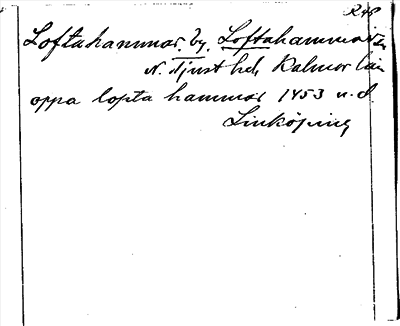 R 48
Loftahammar. by. Loftahammar sn
N. Tjust hd, Kalmar län
oppa lopta hammar 1453 u. d.
Linköping